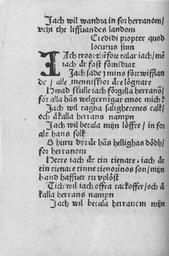 Jach wil wandra in for herranom/
vthi the liffuandes landom
Credidi propter quod
locutus sum
Jach troor: therfore talar iach/ men
iach är fast fömidrat
Jach sade j mino förwiffilan
de/ alle menniskior äre lögnare
Hwad skulle iach forgella herranom
for alla hans welgerningar emot mich
Jach wil tagha saligheteness calk/
och åkalla herrans nampn
Jach wil betala mijn löffte/ in for
alt hans folk
O huru dyr är hans helighas dödh/
for herranom
Herre iach är tin tienare/ iach är
tin tienare/ tinne tienoirinnos son/ mijn
band haffuer tu vplöst
Tich wil iach offra tackoffer/ och
åkalla herrans nampn
Jach wil betala herranom mijn